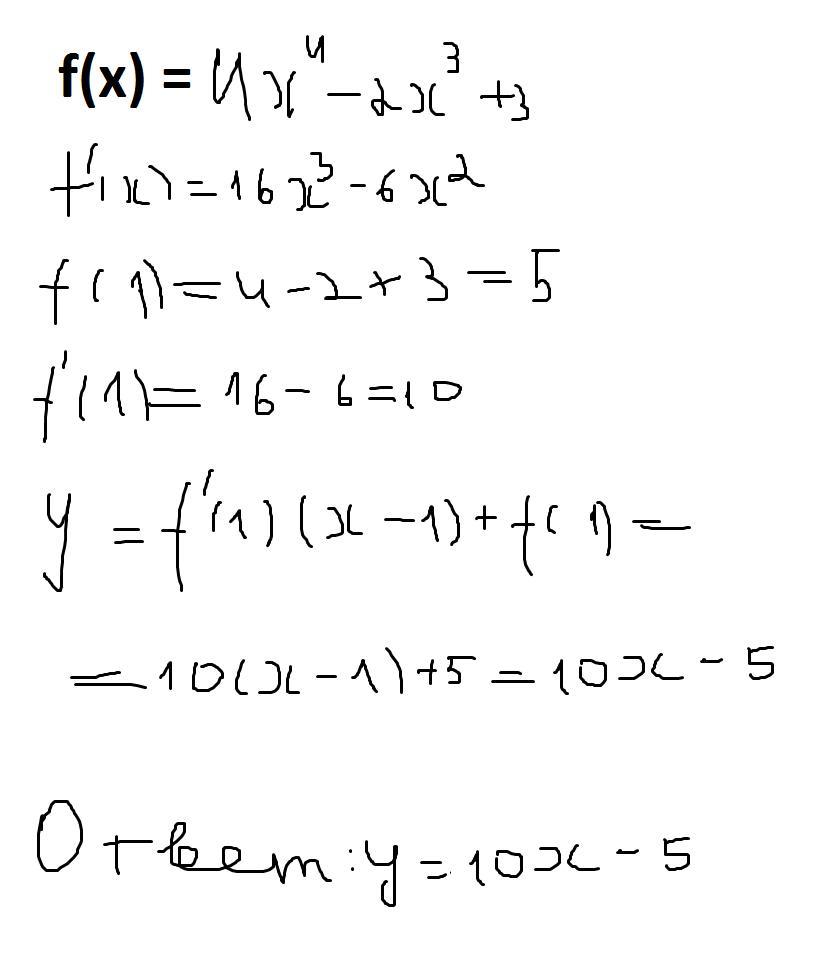 f(x) = 4x⁴ - 2x³ + 3
f'(x) = 16x³ - 6x²
f(1) = 4 - 2 + 3 = 5
f'(1) = 16 - 6 = 10
y = f'(1)(x - 1) + f(1) =
= 10(x - 1) + 5 = 10x - 5
Ответ: y = 10x - 5